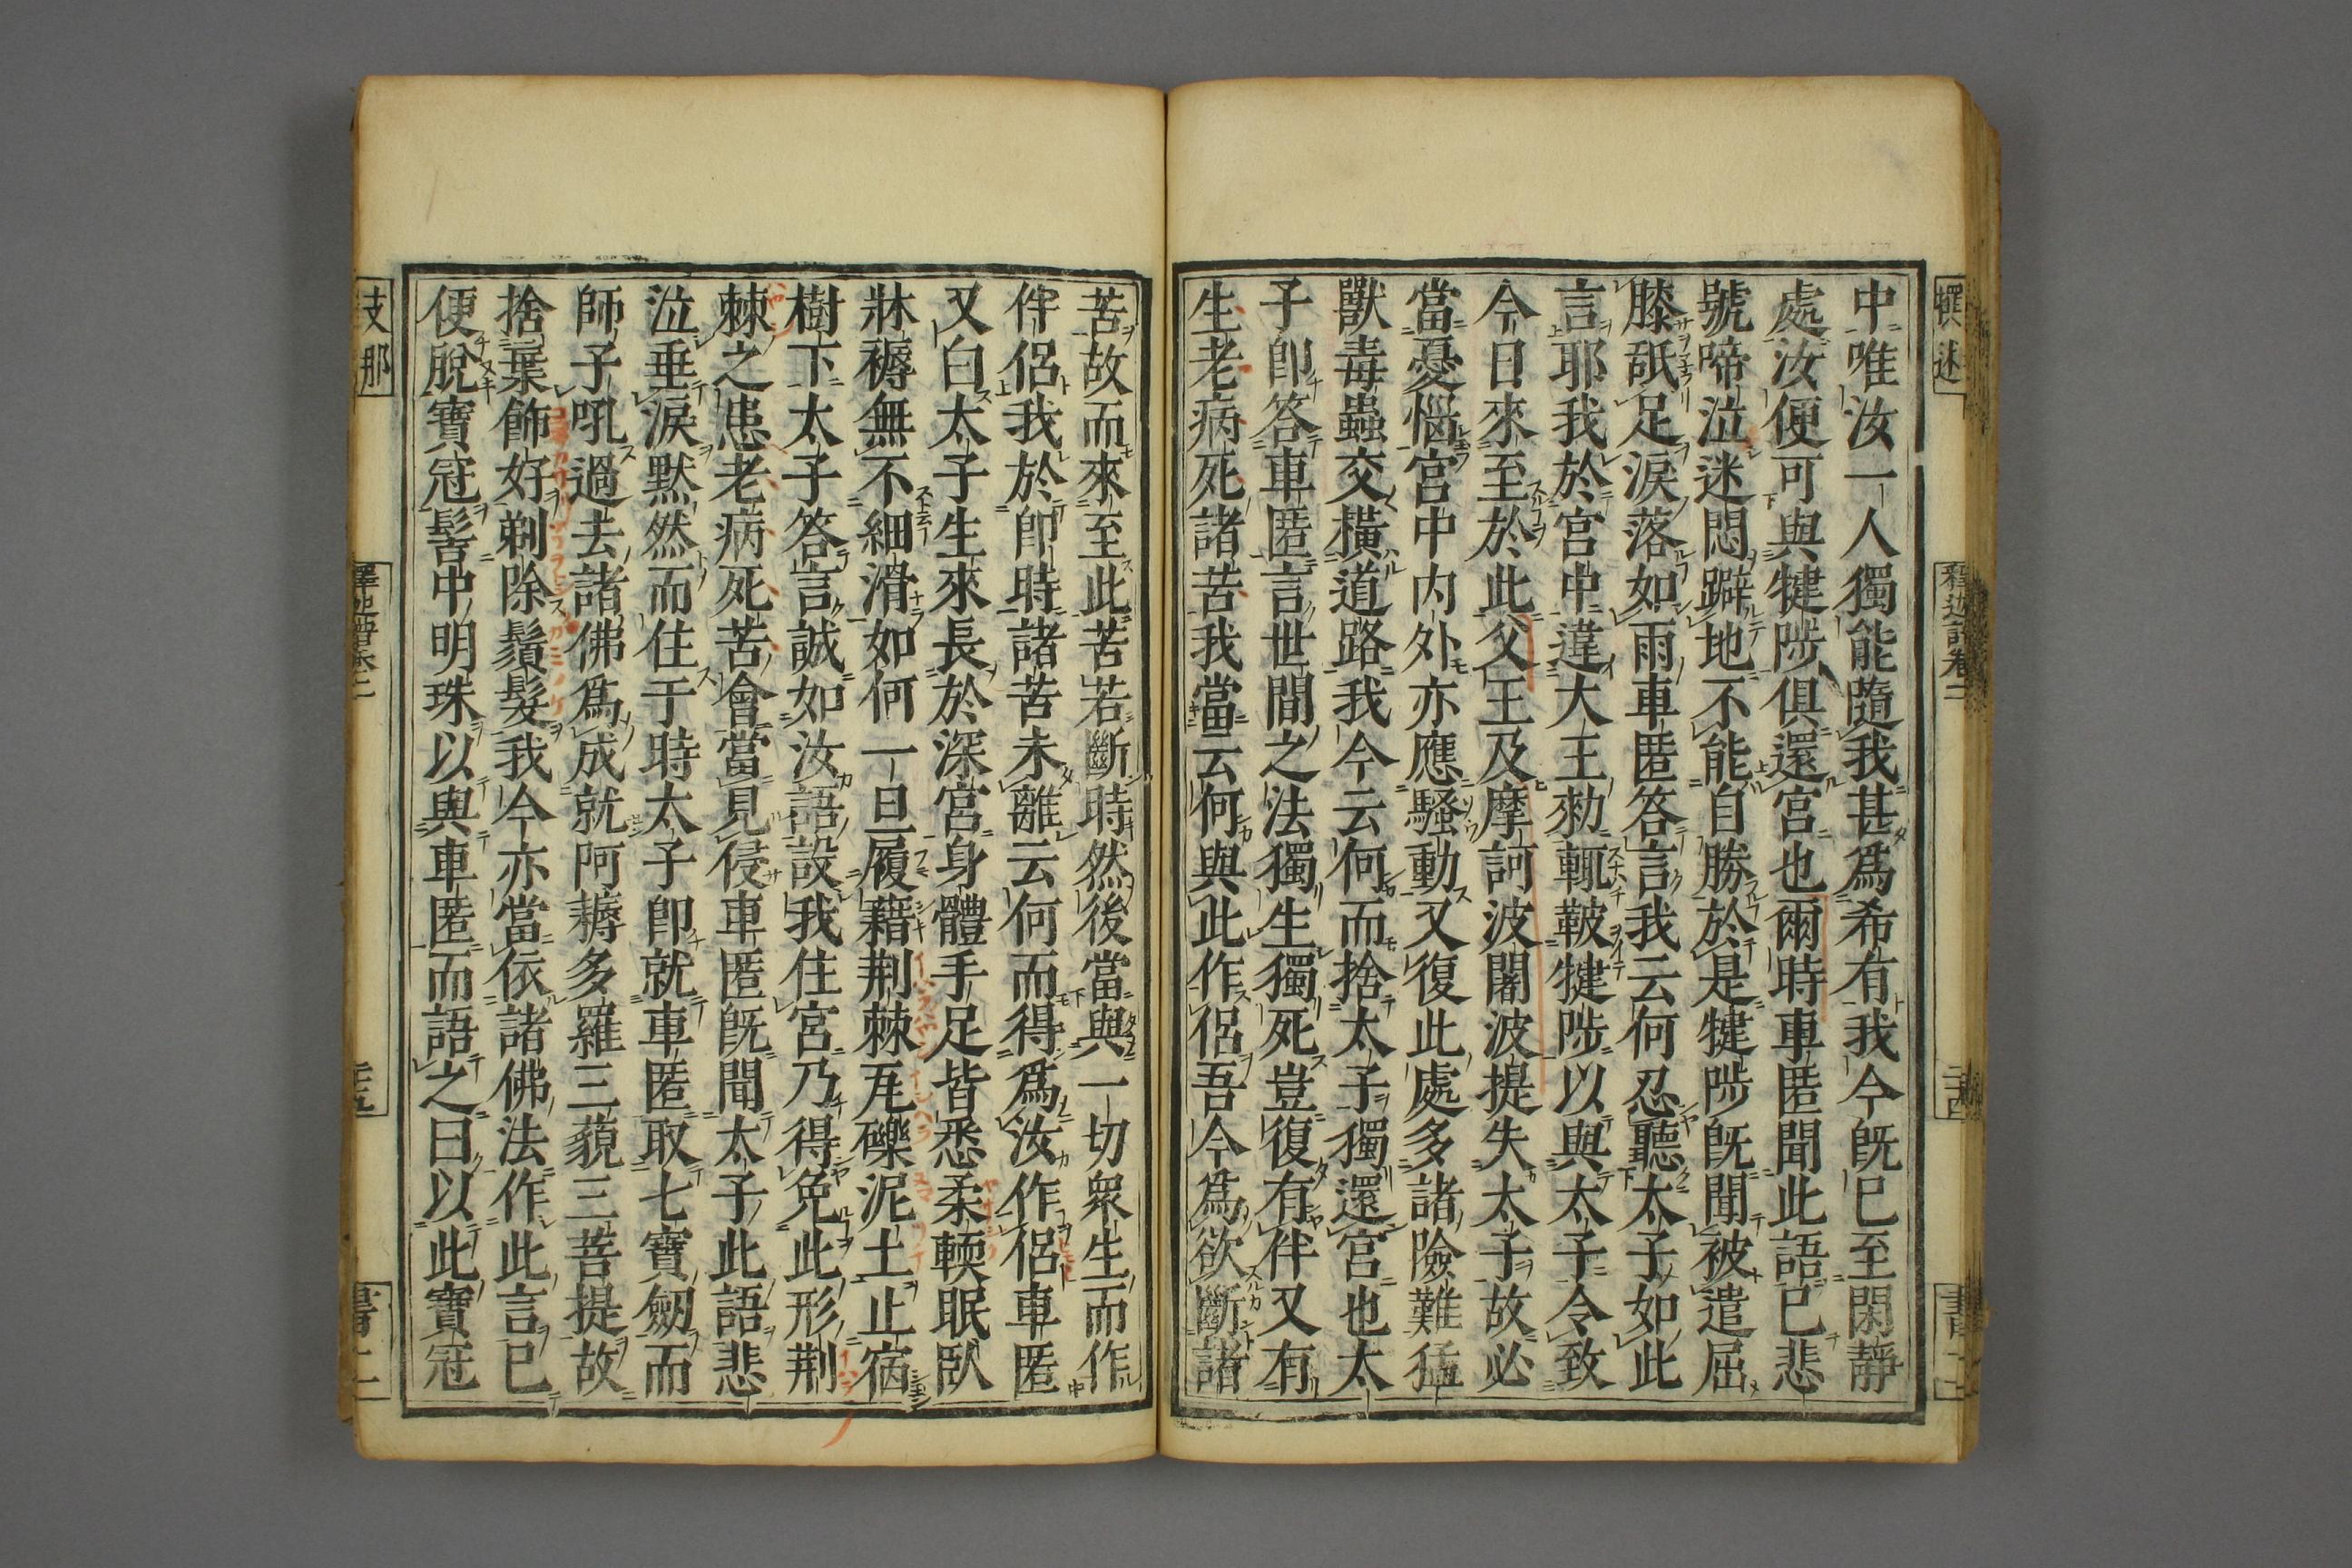 中唯汝一人獨能隨我甚爲希有我今旣已至閑靜
處汝便可與犍陟俱還宮也爾時車匿聞此語已悲
號啼泣迷悶躃地不能自勝於是犍陟旣聞被遣屈
膝舐足淚落如雨車匿答言我云何忍聽太子如此
言耶我於宮中違大王勑輒鞁犍陟以與太子令致
今日來至於此父王及摩訶波闍波提失太子故必
當憂惱宮中内外亦應騷動又復此處多諸險難猛
獸毒蟲交橫道路我今云何而捨太子獨還宮也太
子即答車匿言世間之法獨生獨死豈復有伴又有
生老病死諸苦我當云何與此作侶吾今爲欲斷諸
苦故而來至此苦若斷時然後當與一切衆生而作
伴侶我於即時諸苦未離云何而得爲汝作侶車匿
又白太子生來長於深宮身體手足皆悉柔輭眠臥
牀褥無不細滑如何一旦履藉荆棘瓦礫泥土止宿
樹下太子答言誠如汝語設我住宮乃得免此形荆
棘之患老病死苦會當見侵車匿旣聞太子此語悲
泣垂淚默然而住于時太子即就車匿取七寶劒而
師子吼過去諸佛爲成就阿耨多羅三藐三菩提故
捨棄飾好剃除鬚髮我今亦當依諸佛法作此言已
便脫寶冠髻中明珠以與車匿而語之曰以此寶冠